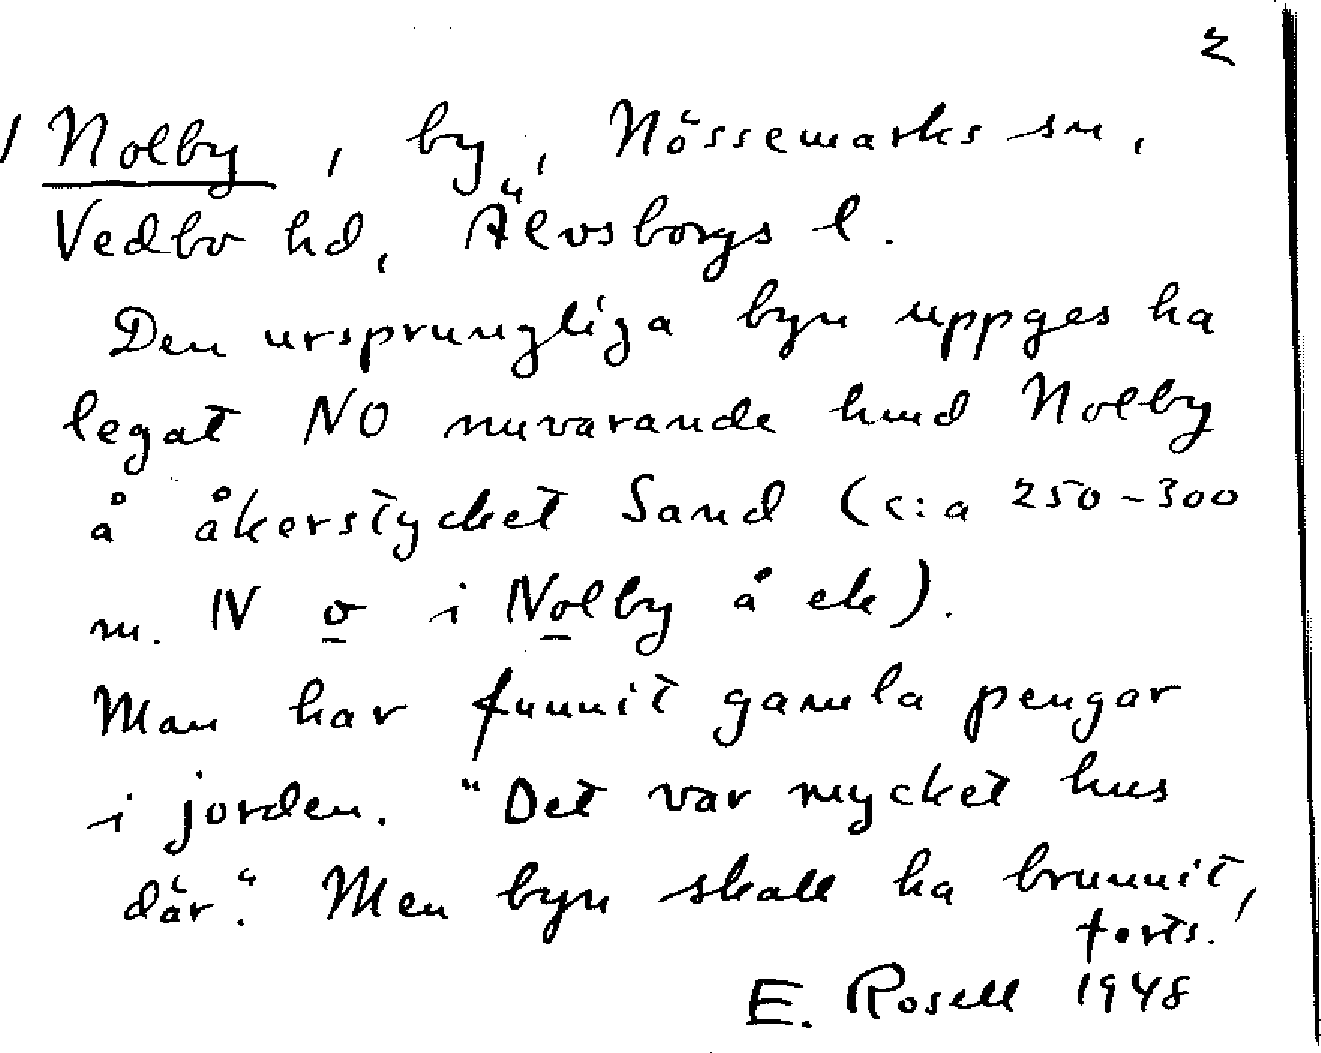 2
/ Nolby, by, Nössemarks sn,
Vedbo hd, Älvsborgs l.
Den ursprungliga byn uppges ha
legat NO nuvarande hmd Nolby
å åkerstycket Sand (c:a 250-300
m. N o i Nolby å ek).
Man har funnit gamla pengar
i jorden. "Det var mycket hus
där". Men byn skall ha brunnit,
forts.
E. Rosell 1948